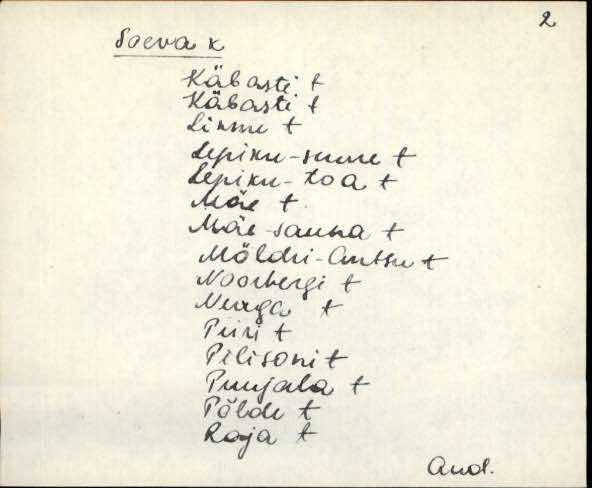 2
Soeva k
Käbasti t
Käbasti t
Linnu t
Lepiku-suure t
Lepiku-toa t
Mäe t
Mäe-sauna t
Möldri-Antsu t
Noorbergi t
Nurga t
Piiri t
Pilisoni t
Puujala t
Põldi t
Raja t
Aud.